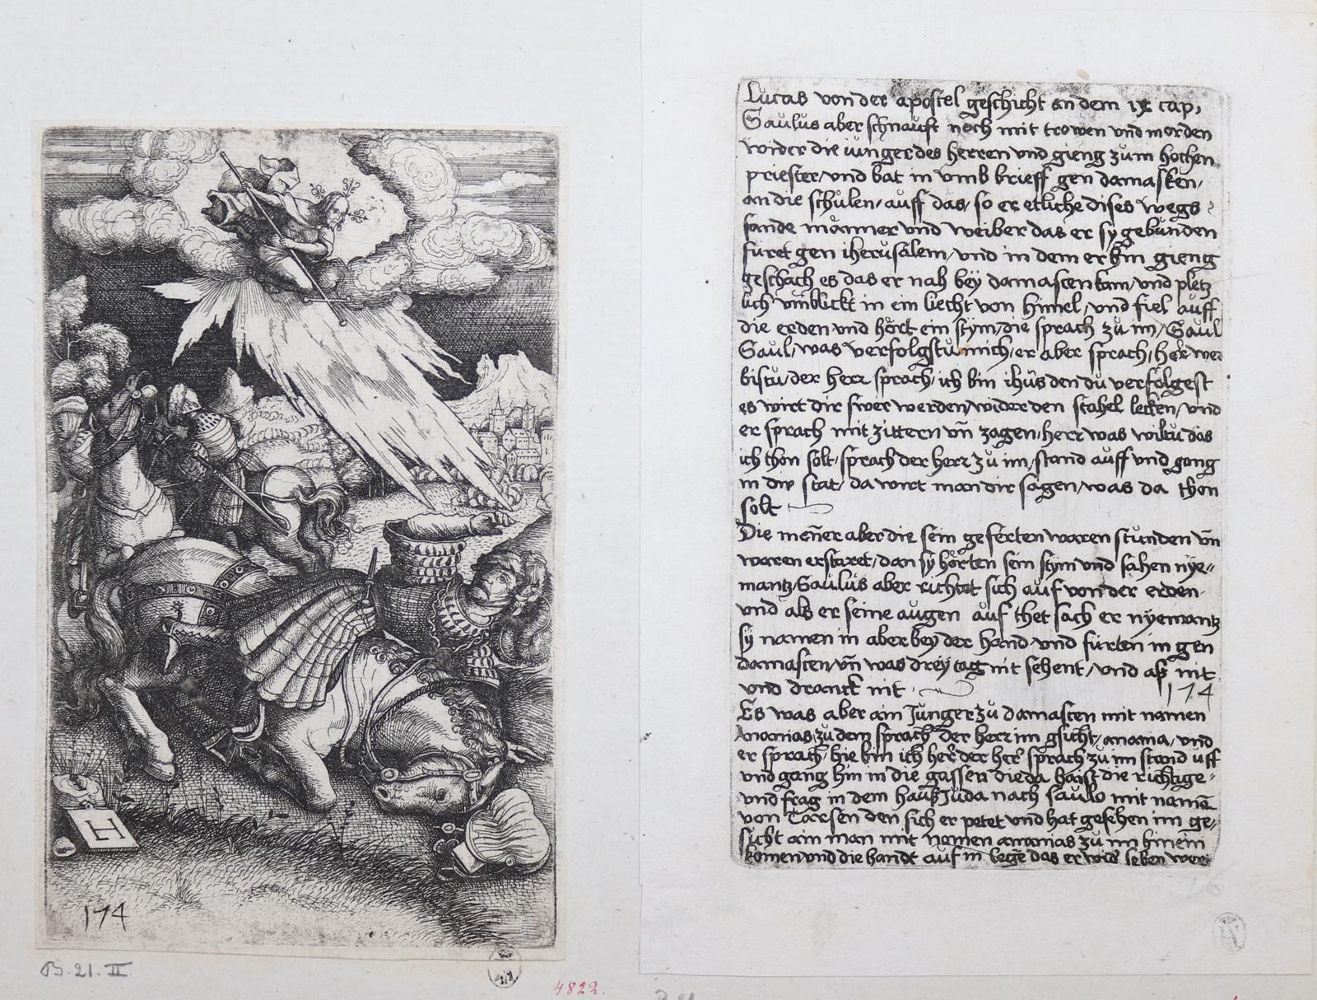 174
B. 21. II
4822.
Lucas von der apostel geschicht an dem ix cap,
Saulus aber schnauft noch mit trowen und morden
wider die iunger des herren und gieng zum hochen
priester, und bat in umb brieff gen damasken,
an die schulen, auff das, so er etliche dises wegs
fande männer und weiber das er sy gebunden
füret gen iherusalem, und in dem er hin gieng
geschach es das er nah bey damascen kam, und pletz
lich umblickt in ein liecht von himel, und fiel auff
die erden und hört ein stym, die sprach zu im, Saul
Saul, was verfolgstu mich, er aber sprach, her wer
bistu, der herr sprach, ich bin ihüs den du verfolgest
es wirt dir swer werden, wider den stahel lecken, und
er sprach mit zittern uñ zagen, herr was wiltu das
ich thon solt, sprach der herr zu im, stand auff und gang
in die stat, da wirt man dir sagen, was da thon
solt
Die meñer aber die sein geferten waren stunden uñ
waren erstaret, dan sy horten sein stym und sahen nye=
mantz, Saulus aber richtet sich auf von der erden
und als er seine augen auf thet sach er nyemantz
sy namen in aber bey der hand und fürten in gen
damascen, uñ was drey tag nit sehent, und aß nit
und dranck nit
174
Es was aber ain Junger zu damascen mit namen
Ananias, zu dem sprach der herr im gsicht, anania, und
er sprach, hie bin ich her, der her sprach zu im stand uff
und gang hin in die gassen die da haist die richtige
und frag in dem hauß Juda nach saulo mit namē
von Tarsen den sich er petet und hat gesehen im ge=
sicht ain man mit namen ananias zu im hinein
komen und die handt auf in legē das er wid